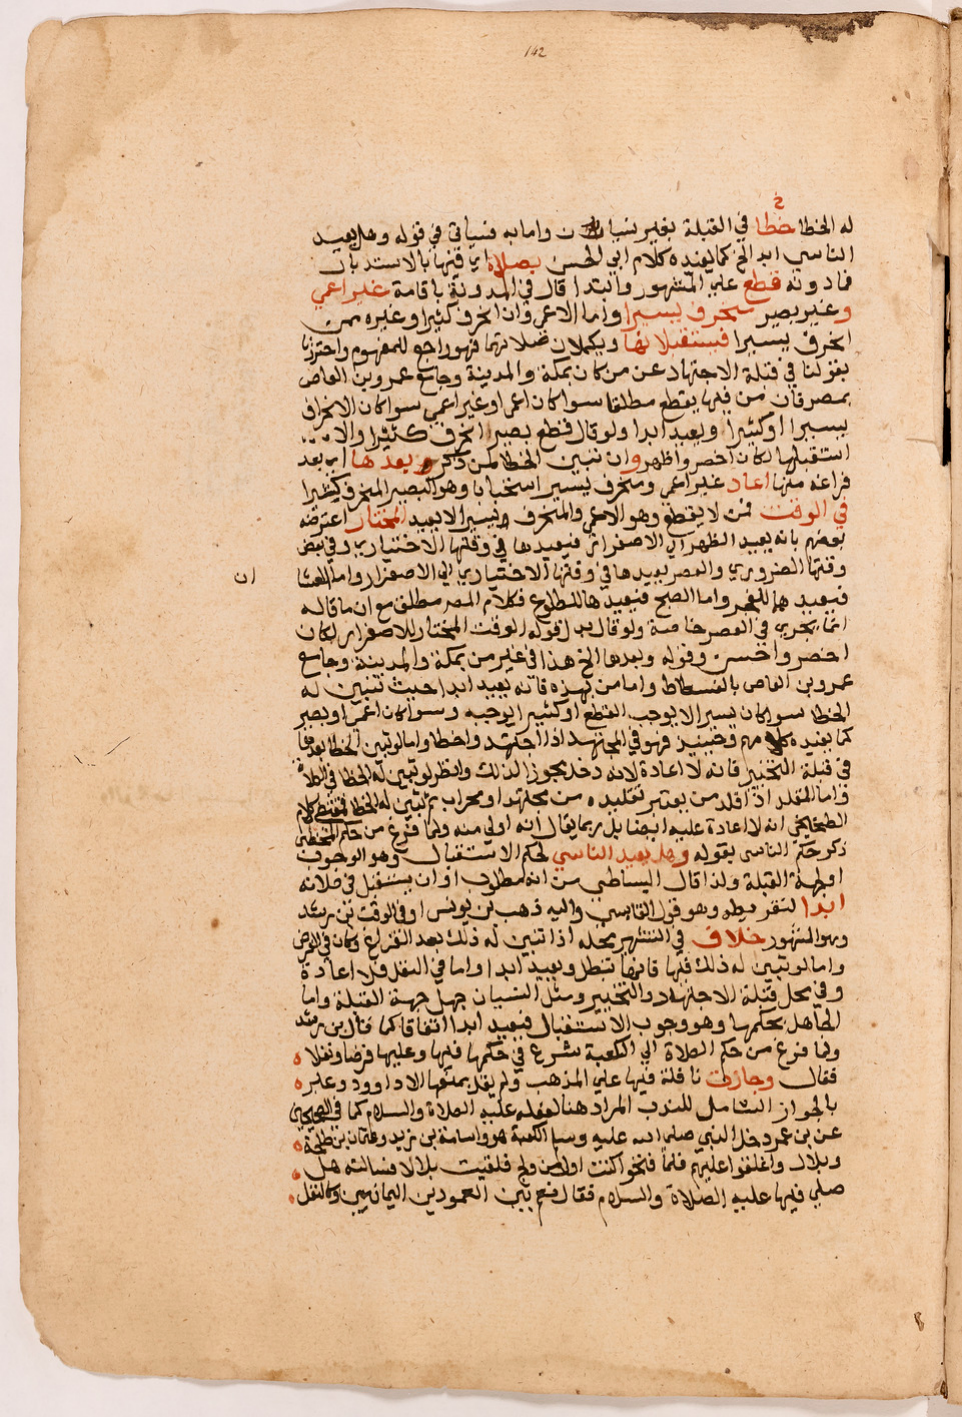 142
له الخطا خطا في القبلة بغير نسيان وامابه فسياتي في قوله وهل يعيد
الناسي ابدا الخ كما يفيده كلام ابي الحسن بصلاة اي فيها بالاستدبار
فادونه قطع علي المشهور وابتدا قال في المدونة باقامة غير اعمي
وغير بصير منحرف يسيرا واما الاعمي وان انحرف كثيرا وغيره ممن
انحرف يسيرا فيستقبلانها ويكملان صلاتهما فهو راجع للمفهوم واحترزنا
بقولنا في قبلة الاجتهاد عن من كان بمكة والمدينة وجامع عمرو بن العاص
بمصر فان من فيها يقطع مطلقا سوا كان اعمي او غير اعمي سوا كان الانحراف
يسيرا او كثيرا ويعيد ابدا ولو قال قطع بصير انحرف كثيرا والا
استقبلها لكان اخصر واظهر وان تبين الخطا لمن ذكر وبعدها اي بعد
فراغه منها اعاد غير اعمي ومنحرف يسير استحبابا وهو البصير المنحرف كثيرا
في الوقت من لا يقطع وهو الاعمي والمنحرف يسيرا لا يعيد المختار اعترضه
بعضهم بانه يعيد الظهر الي الاصفرار فيعيدها في وقتها الاختياري وفي بعض
وقتها الضروري والعصر يعيدها في وقتها الاختياري الي الاصفرار واما العشا
ان
فيعيدها للفجر واما الصبح فيعيدها للطلوع فكلام المصر مطلق مع ان ما قاله
انما يجري في العصر خاصة ولو قال بدل قوله الوقت المختار للاصفرار لكان
اخصر واحسن وقوله وبعدها الخ هذا في غير من بمكة والمدينة وجامع
عمرو بن العاص بالفسطاط واما من بهذه فانه يعيد ابدا حيث تبين له
الخطا سوا كان يسيرا لا يوجب القطع او كثيرا يوجبه وسوا كان اعمي او بصير
كما يفيده كلامهم وحينيذ فهو في المجتهد اذا اجتهد واخطا واما لو تبين الخطا بعدها
في قبلة التخيير فانه لا اعادة لانه دخل مجوزا لذلك وانظر لو تبين له الخطا في الصلاة
واما المقلد اذا قلد من يعتبر تقليده من مجتهد او محراب ثم تبين له الخطا فمقتضي كلام
الطخيخي انه لا اعادة عليه ايضا بل ربما يقال انه اولي منه ولما فرغ من حكم المخطي
ذكر حكم الناسي بقوله وهل يعيد الناسي لحكم الاستقبال وهو الوجوب
او لجهة القبلة ولذا قال البساطي من انه مطلوب او ان يستقبل في صلاته
ابدا لتفريطه وهو قول القابسي واليه ذهب بن يونس او في الوقت بن رشد
وهو المشهور خلاف في التشهير محله اذا تبين له ذلك بعد الفراغ وكان في الفرض
واما لو تبين له ذلك فيها فانها تبطل ويعيد ابدا واما في النفل فلا اعادة
وفي محل قبلة الاجتهاد والتخيير ومثل النسيان جهل جهة القبلة واما
الجاهل بحكمها وهو وجوب الاستقبال فيعيد ابدا اتفاقا كما قال بن رشد
ولما فرغ من حكم الصلاة الي الكعبة شرع في حكمها فيها وعليها فرضا ونفلا
فقال وجازت نافلة فيها علي المذهب ولم يقل بمنعها الا داوود وعبر
بالجواز الشامل للندب المراد هنا لفعله عليه الصلاة والسلام كما في الصحيحين
عن بن عمر دخل النبي صلي الله عليه وسلم الكعبة هو واسامة بن زيد وعثمان بن طلحة
وبلال واغلقوا عليهم فلما فتحوا كنت اول من ولج فلقيت بلالا فسالته هل
صلي فيها عليه الصلاة والسلام فقال نعم بين العمودين اليمانيين وكالنفل